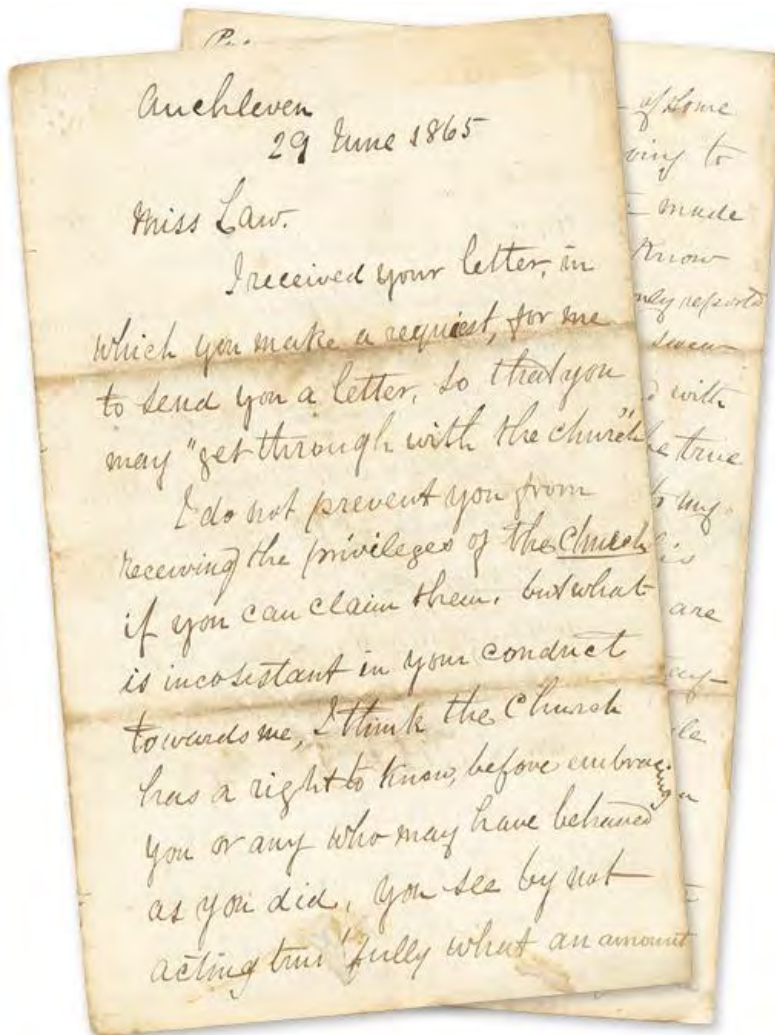 Auchleven
29 June 1865
Miss Law.
I received your letter, in
which you make a request, for me
to send you a letter, so that you
may "get through with the church"
I do not prevent you from
receiving the privileges of the Church
if you can claim them. but what
is incosistant in your conduct
towards me, I think the Church
has a right to know, before embracing
you or any who may have behaved
as you did, you see by not
acting truthfully what an amount
of some
to
made
Know
reports
with
be true
to my
are